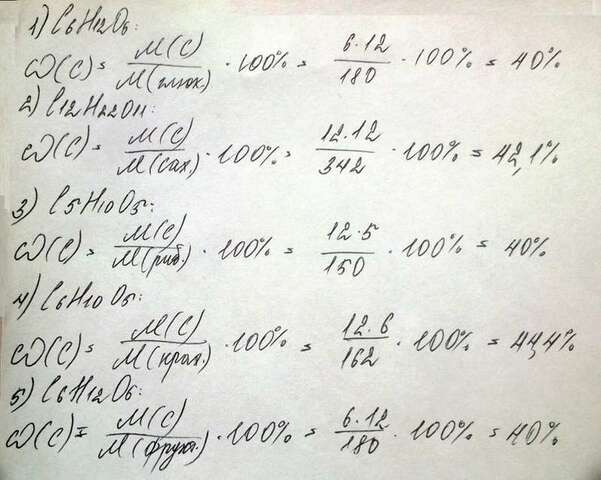 1) C6H12O6:
ω(C) = M(C)/M(глюк.) · 100% = 6·12/180 · 100% = 40%
2) C12H22O11:
ω(C) = M(C)/M(сах.) · 100% = 12·12/342 · 100% = 42,1%
3) C5H10O5:
ω(C) = M(C)/M(риб.) · 100% = 12·5/150 · 100% = 40%
4) C6H10O5:
ω(C) = M(C)/M(крах.) · 100% = 12·6/162 · 100% = 44,4%
5) C6H12O6:
ω(C) = M(C)/M(фрукт.) · 100% = 6·12/180 · 100% = 40%